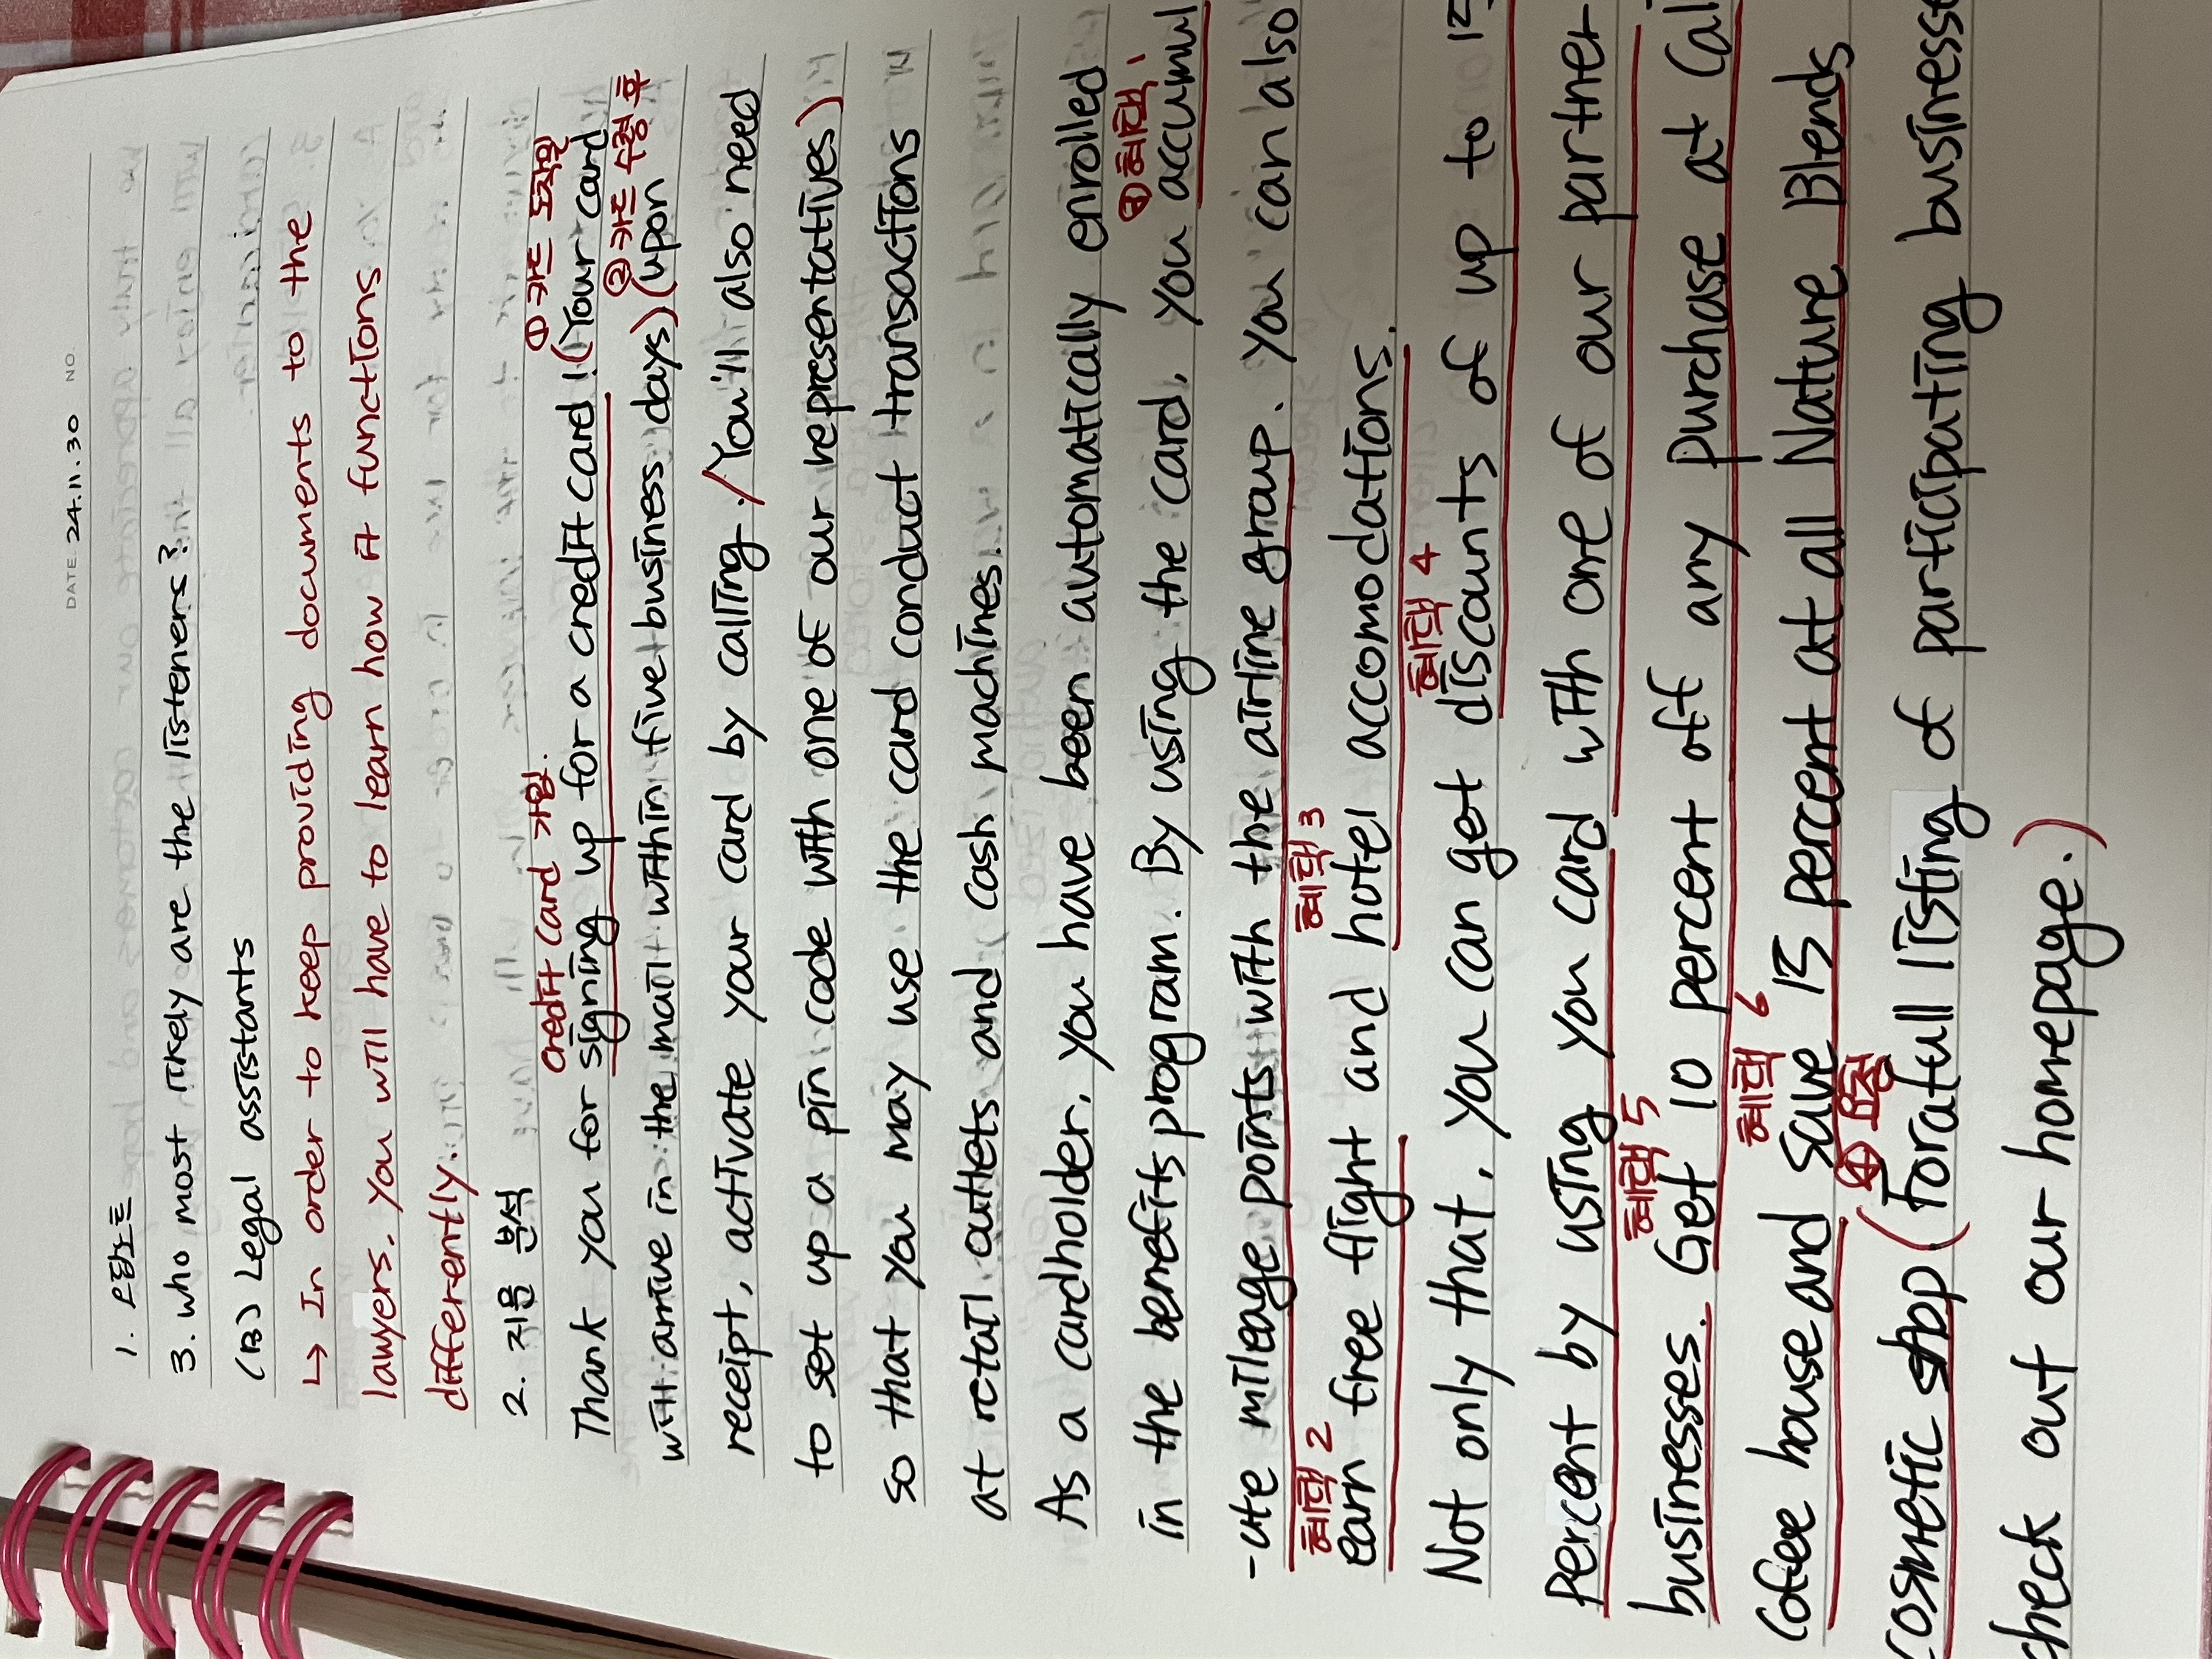 DATE 24.11.30 NO.
1. 오답노트
3. who most likely are the listeners?
(B) Legal assistants
↳ In order to keep providing documents to the
lawyers, you will have to learn how it functions
differently.
2. 지문 분석
credit card 가입. ① 카드 도착일
Thank you for signing up for a credit card! (Your card
② 카드 수령 후
will arrive in the mail within five business days) (upon
receipt, activate your card by calling. / You'll also need
to set up a pin code with one of our representatives)
so that you may use the card conduct transactions
at retail outlets and cash machines.
As a cardholder, you have been automatically enrolled
③ 혜택 1
in the benefits program. By using the card, you accumul
-ate mileage points with the airline group. You can also
혜택 2 혜택 3
earn free flight and hotel accomodations.
혜택 4
Not only that, you can get discounts of up to 15
percent by using you card with one of our partner
혜택 5
businesses. Get 10 percent off any purchase at Cali
혜택 6
Coffee house and save 15 percent at all Nature Blends
④ 요청
cosmetic shop (For a full listing of participating businesse
check out our homepage.)